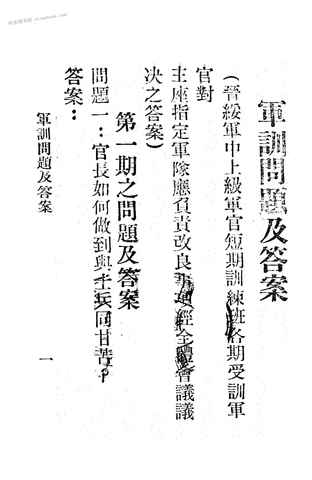 軍訓問題及答案
(晉綏軍中上級軍官短期訓練班各期受訓軍
官對
主座指定軍隊應負責改良事項經全體會議議
決之答案)
第一期之問題及答案
問題一：官長如何做到與士兵同甘苦？
答案：
軍訓問題及答案
一